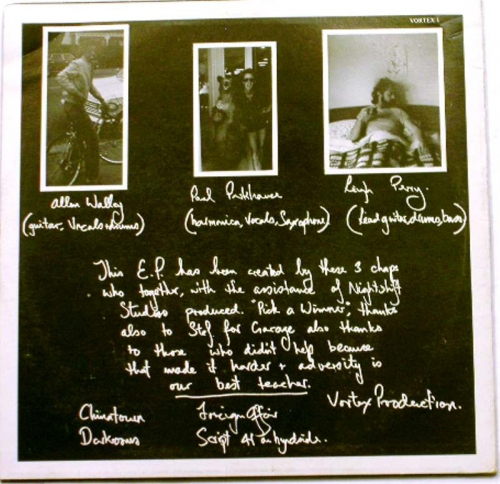 VORTEX 1
Allan Walley
(guitar, Vocals + drums)
Paul Parkhouse
(harmonica, Vocals, Saxophone)
Leigh Perry.
(Lead guitar, drums, bass)
This E.P. has been created by these 3 chaps
who together, with the assistance of Nightshift
Studios produced. "Pick a Winner", thanks
also to Stef for Garage also thanks
to those who didn't help because
that made it harder + adversity is
our best teacher.
Vortex Production.
Chinatown
Foreign Affair
Darkrooms
Script 41